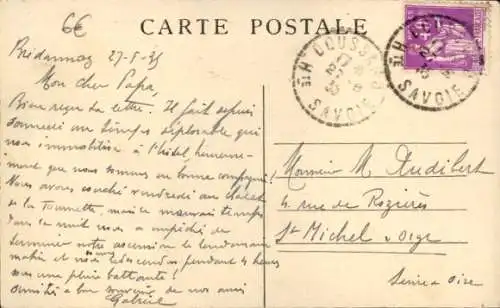 6€
CARTE POSTALE
27-5-35
Mon cher Papa,
Bien reçu ta lettre. Il fait depuis
un temps déplorable qui
nous immobilise à l'hôtel, heureuse-
ment que nous sommes en bonne compagnie!
Nous avons couché vendredi au chalet
de la Tournette, mais le mauvais temps
dans la nuit nous a empêché de
terminer notre ascension le lendemain
matin et nous redescendons pendant 4 heures
sous une pluie battante!
Amitiés & bon souvenir de nos amis
Gabriel
DOUSSARD
Hte SAVOIE
DOUSSARD
Hte SAVOIE
Monsieur M Audibert
4 rue de Rozières
St Michel s/ Orge
Seine & Oise